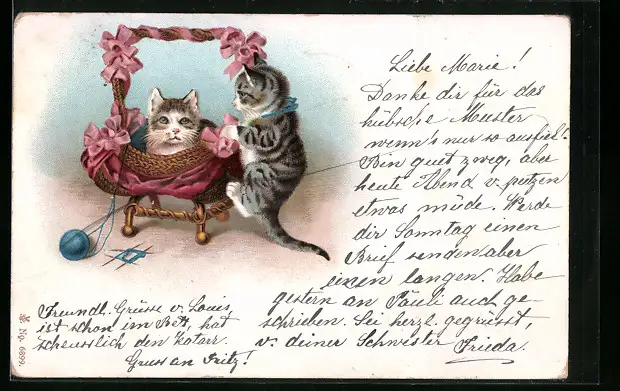 Liebe Marie!
Danke dir für das
hübsche Muster
wenn's nur so ausfiel!
Bin guet zweg, aber
heute Abend v. putzen
etwas müde. Werde
dir Sonntag einen
Brief senden aber
einen langen. Habe
gestern an Päuli auch ge-
schrieben. Sei herzl. gegrüsst,
v. deiner Schwester Frieda.
Freundl. Grüsse v. Louis
ist schon im Bett, hat
scheusslich den Katarr.
Gruss an Fritz!
No. 6899.